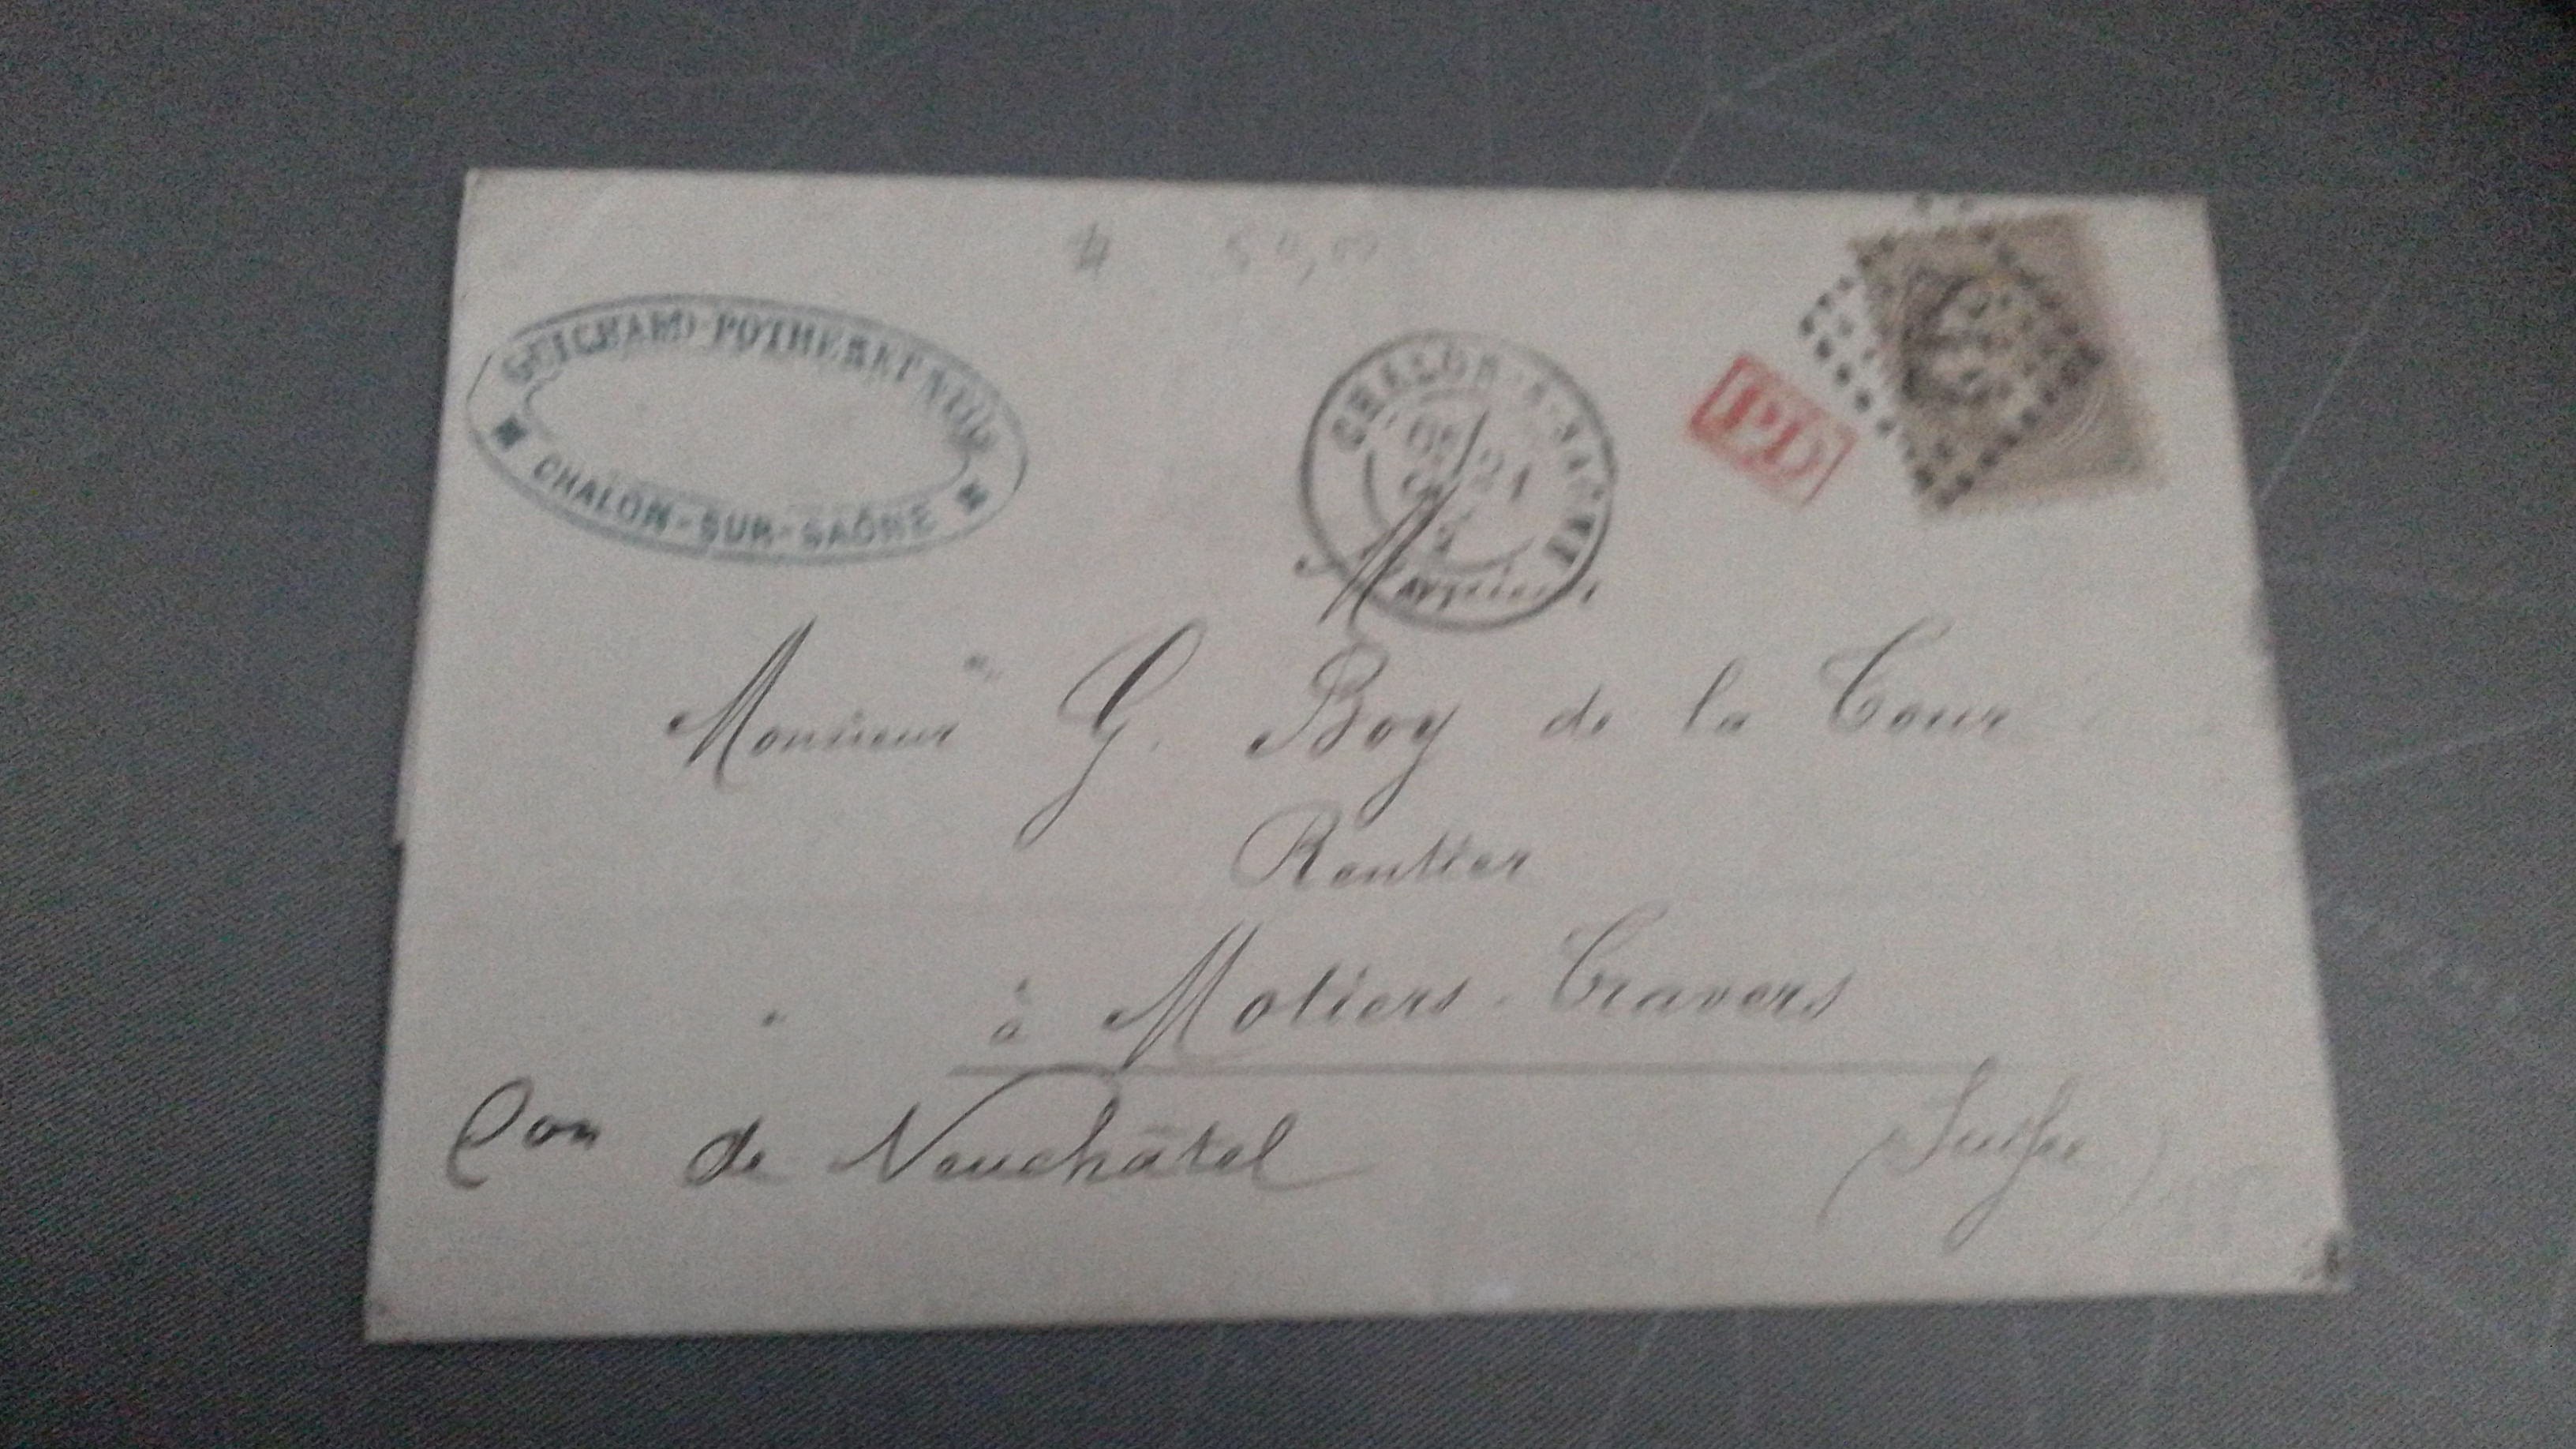 # 50,00
GUICHARD-POTHERET
CHALON-SUR-SAÔNE
CHALON-S-SAÔNE
21
PD
Monsieur G. Boy de la Tour
Rentier
à Motiers-Travers
Con de Neuchâtel
(Suisse)